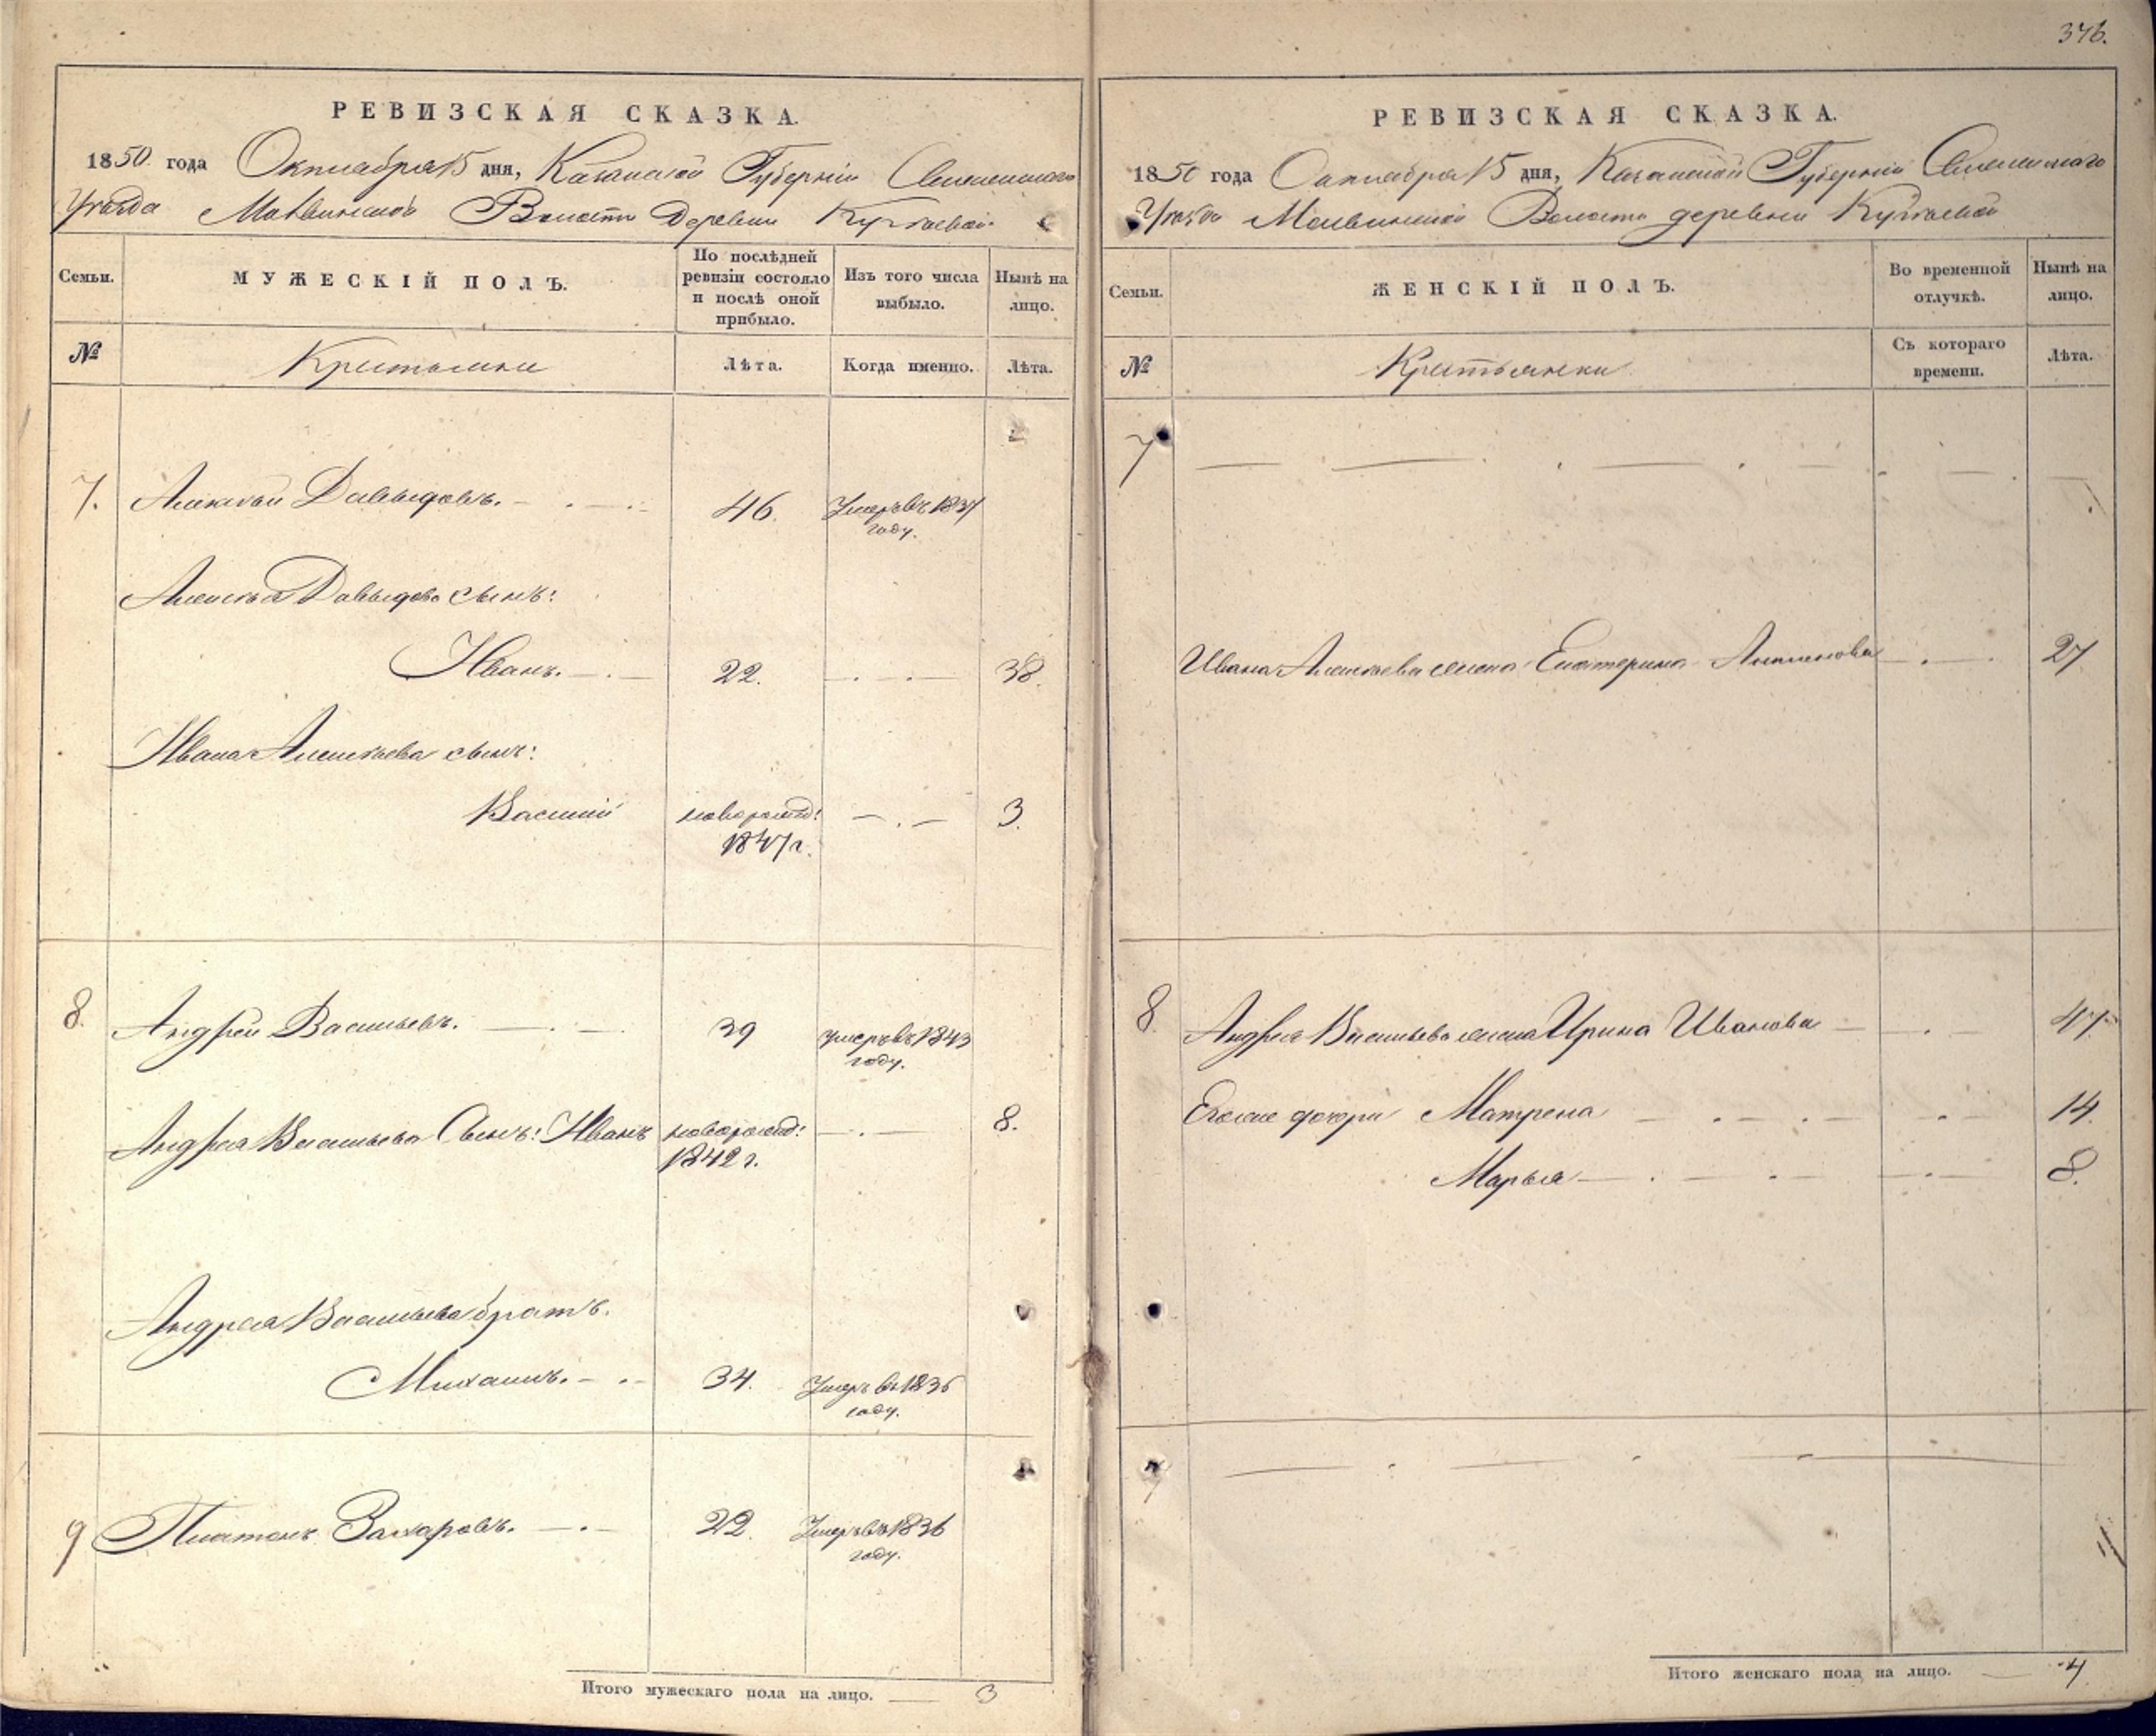 346.
РЕВИЗСКАЯ СКАЗКА.
1850 года Октября 15 дня, Казанской Губерніи
Уѣзда Волости Деревни
Семьи.
МУЖЕСКІЙ ПОЛЪ.
По послѣдней ревизіи состояло и послѣ оной прибыло.
Изъ того числа выбыло.
Нынѣ на лицо.
№
Крестьяне
Лѣта.
Когда именно.
Лѣта.
7. Алексѣй Давыдовъ. 46. Умеръ въ 1837 году.
Алексѣя Давыдова сынъ:
Иванъ. 22. 38.
Ивана Алексѣева сынъ:
Василій новорожд: 1847 г. 3.
8. Андрей Васильевъ. 39 умеръ въ 1843 году.
Андрея Васильева Сынъ: Иванъ новорожд: 1842 г. 8.
Андрея Васильева братъ.
Михаилъ. 34. Умеръ въ 1836 году.
9 Платонъ Захаровъ. 22. Умеръ въ 1836 году.
Итого мужескаго пола на лицо. 3
РЕВИЗСКАЯ СКАЗКА.
1850 года Октября 15 дня, Казанской Губерніи
Уѣзда Волости деревни
Семьи.
ЖЕНСКІЙ ПОЛЪ.
Во временной отлучкѣ.
Нынѣ на лицо.
№
Крестьянки
Съ котораго времени.
Лѣта.
7
Ивана Алексѣева жена Екатерина 27
8. Андрея Васильева жена Ирина Иванова 47.
дочери Матрена 14.
Марья 8.
Итого женскаго пола на лицо. 4